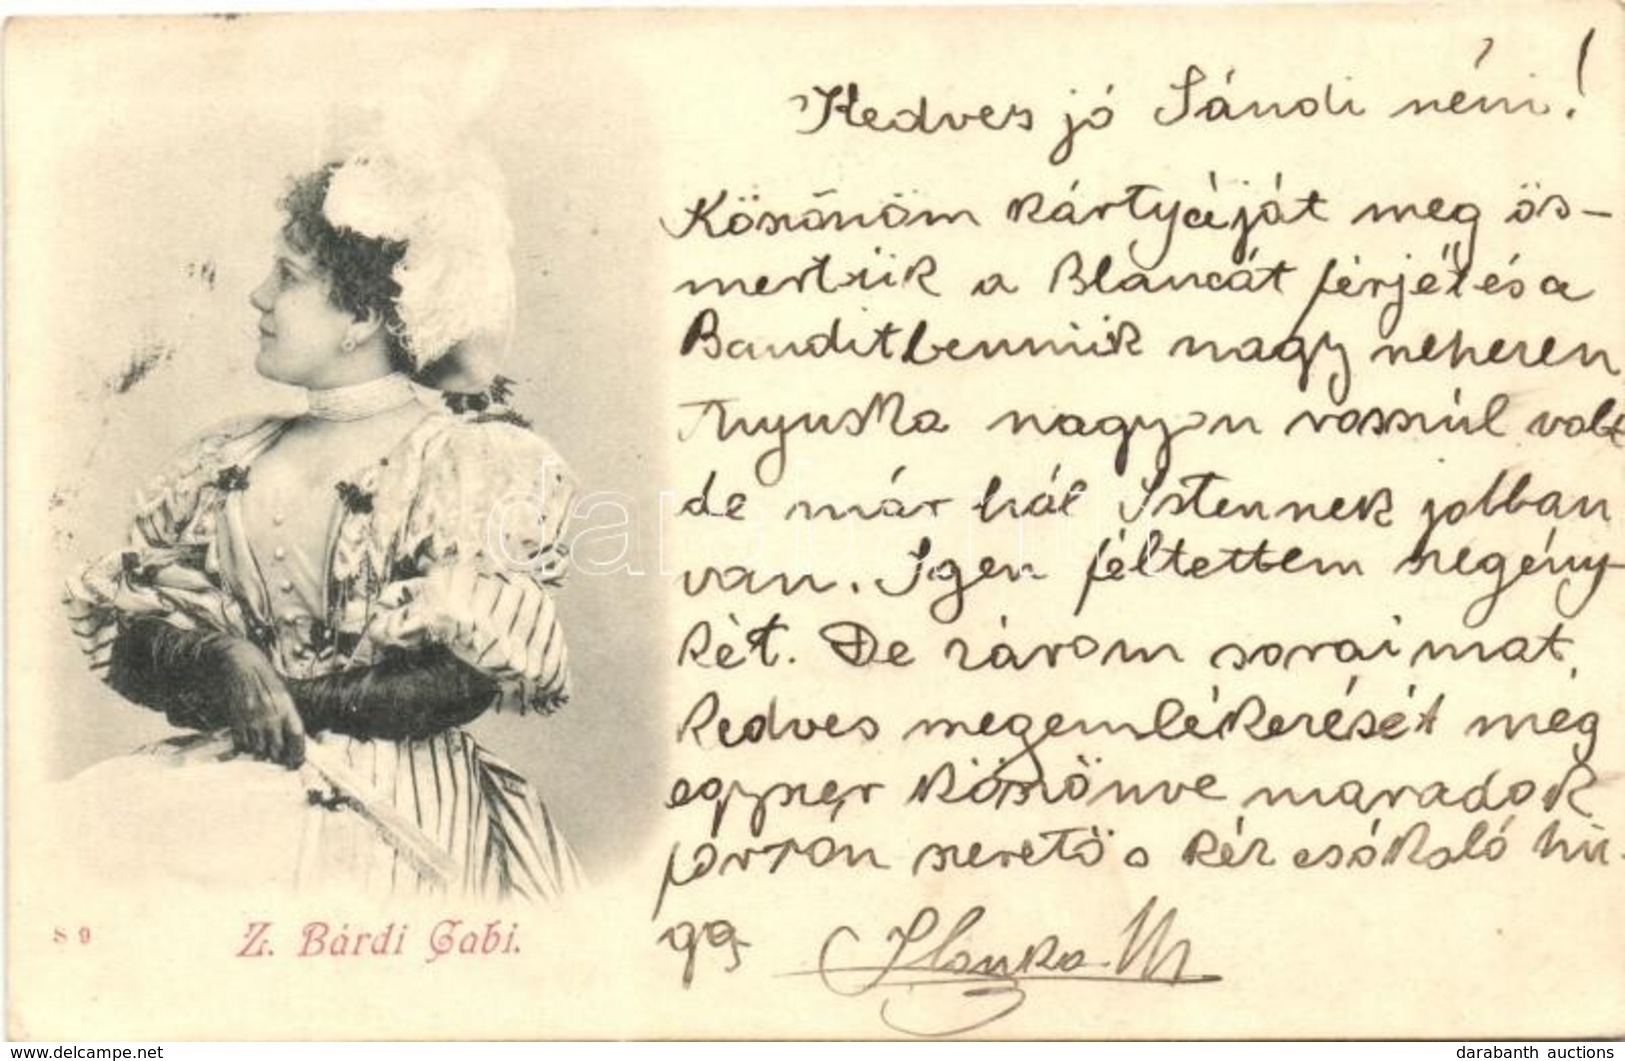 Kedves jó Sándi néni!
Köszönöm kártyáját meg ös-
mertük a Blancát férjét és a
Banditbennük nagy nehezen
Anyuska nagyon rosszúl volt
de már hál Istennek jobban
van. Igen féltettem szegény-
két. De zárom soraimat,
kedves megemlékezését még
egyszer köszönve maradok
forrón szerető s kéz csókoló hú-
ga
Ilonka M
Z. Bárdi Gabi.
S 9
darabanth
www.delcampe.net
darabanth auctions